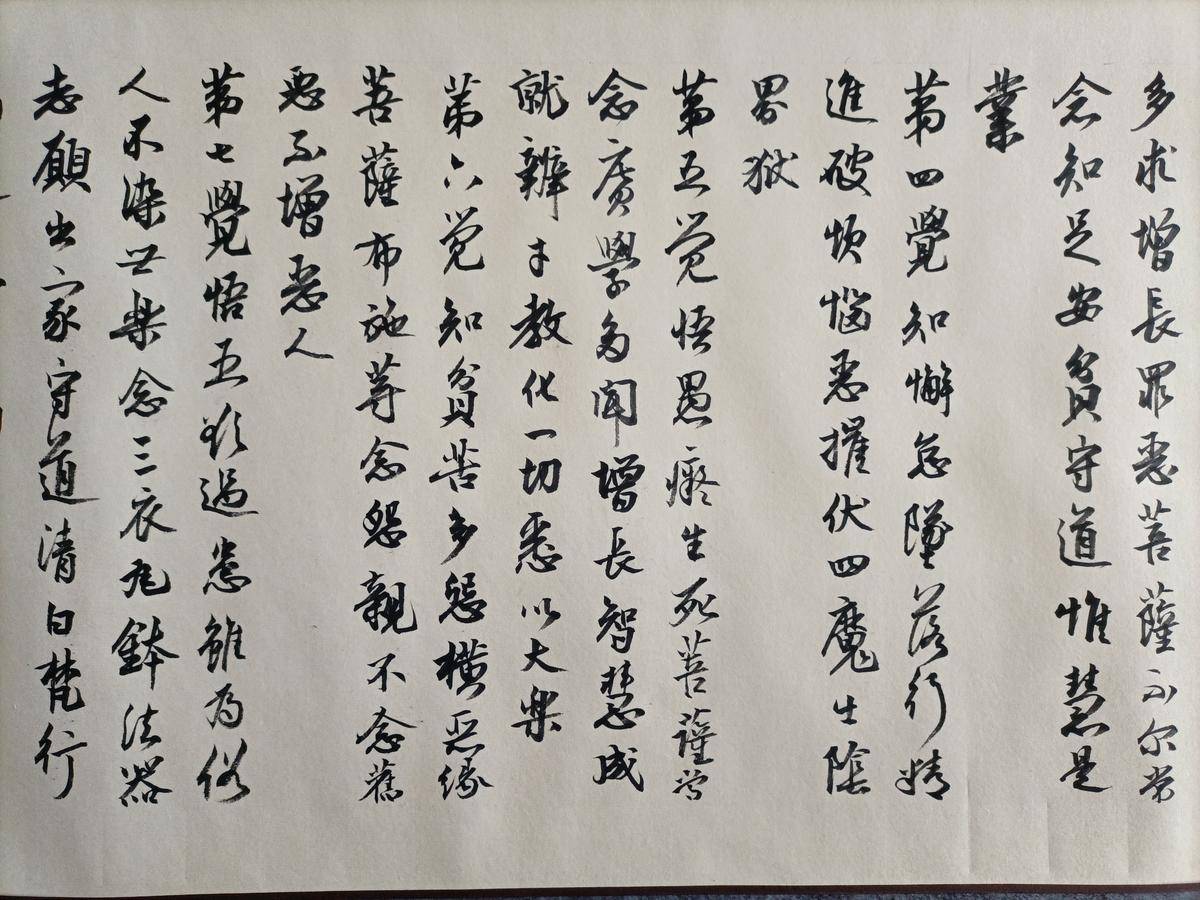 多求增長罪惡菩薩不尔常
念知足安貧守道惟慧是
業
第四覺知懈怠墜落行精
進破煩惱惡摧伏四魔出陰
界獄
第五觉悟愚癡生死菩薩常
念廣學多聞增長智慧成
就辯才教化一切悉以大樂
第六觉知貧苦多怨橫惡缘
菩薩布施等念怨親不念舊
惡不增惡人
第七覺悟五欲過患雖為俗
人不染世樂念三衣瓦鉢法器
志願出家守道清白梵行